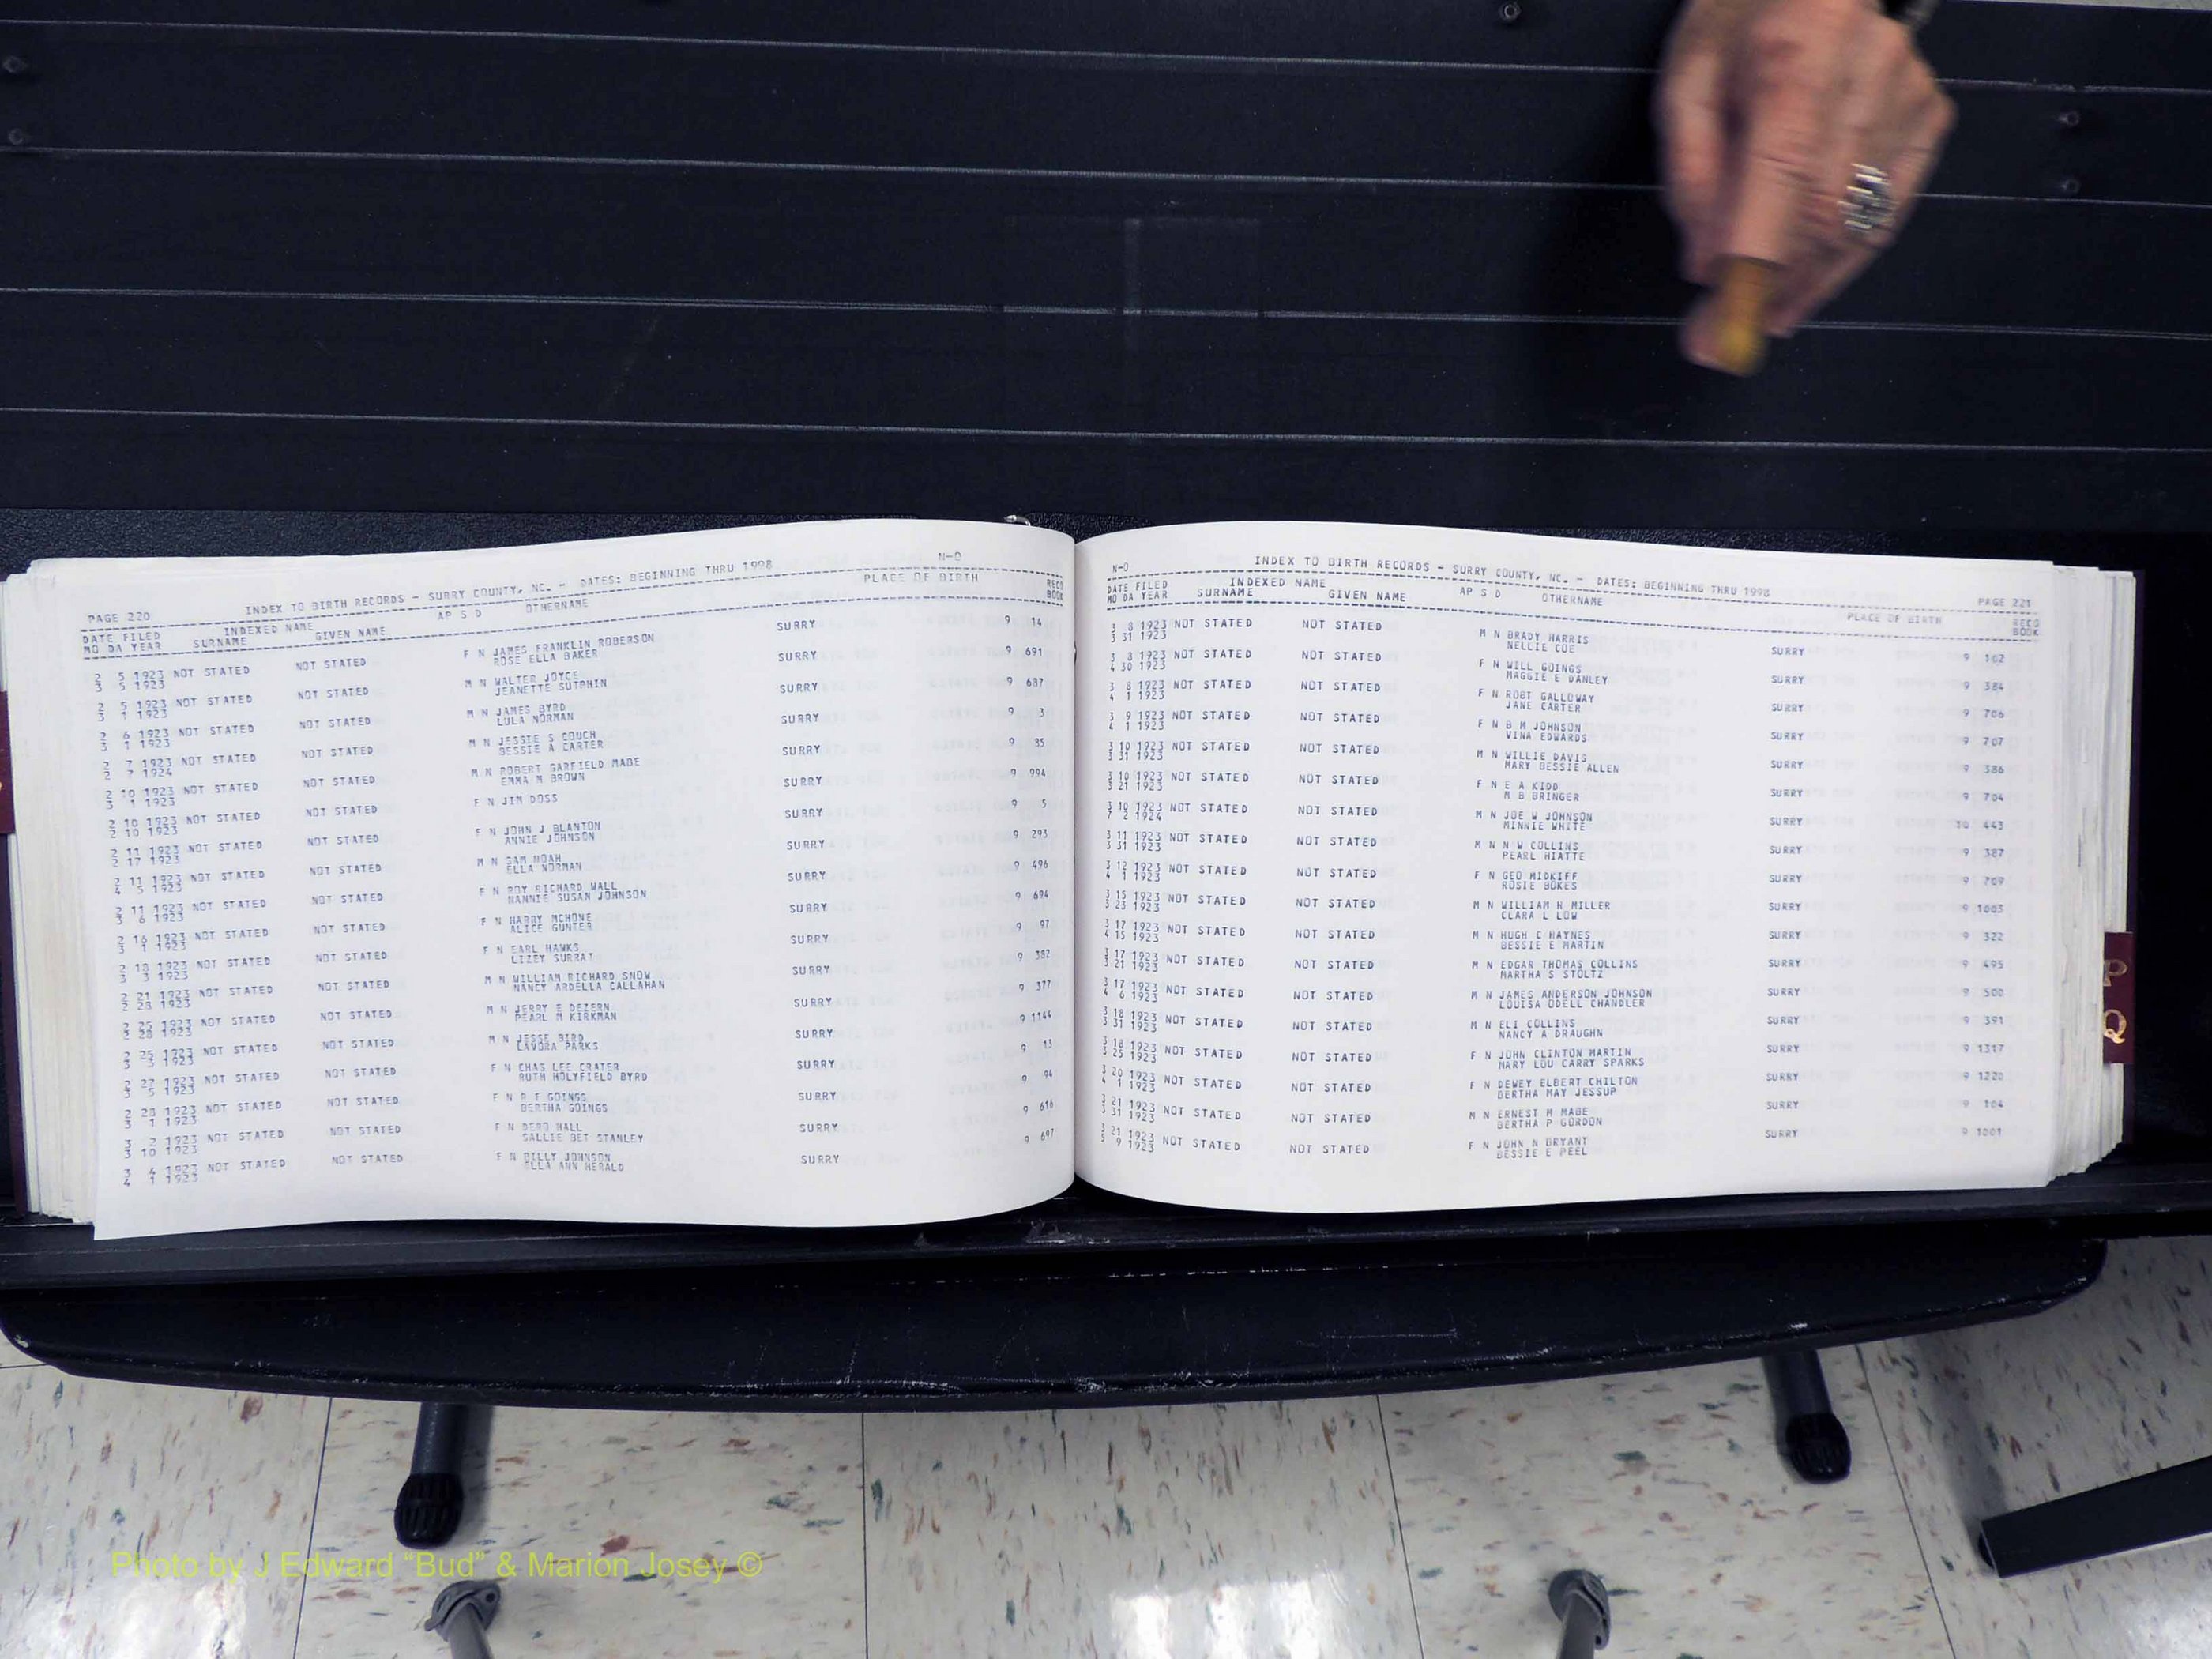 PAGE 220 INDEX TO BIRTH RECORDS - SURRY COUNTY, NC. - DATES: BEGINNING THRU 1998 N-O
DATE FILED INDEXED NAME AP S D OTHERNAME PLACE OF BIRTH RECO
MO DA YEAR SURNAME GIVEN NAME BOOK
2 5 1923 NOT STATED NOT STATED F N JAMES FRANKLIN ROBERSON SURRY 9 14
3 5 1923 ROSE ELLA BAKER
2 5 1923 NOT STATED NOT STATED M N WALTER JOYCE SURRY 9 691
3 1 1923 JEANETTE SUTPHIN
2 6 1923 NOT STATED NOT STATED M N JAMES BYRD SURRY 9 687
3 1 1923 LULA NORMAN
2 7 1923 NOT STATED NOT STATED M N JESSIE S COUCH SURRY 9 3
2 7 1924 BESSIE A CARTER
2 10 1923 NOT STATED NOT STATED M N ROBERT GARFIELD MABE SURRY 9 85
3 1 1923 EMMA M BROWN
2 10 1923 NOT STATED NOT STATED F N JIM DOSS SURRY 9 994
2 10 1923
2 11 1923 NOT STATED NOT STATED F N JOHN J BLANTON SURRY 9 5
2 17 1923 ANNIE JOHNSON
2 11 1923 NOT STATED NOT STATED M N SAM NOAH SURRY 9 293
4 5 1923 ELLA NORMAN
2 11 1923 NOT STATED NOT STATED F N ROY RICHARD WALL SURRY 9 496
3 6 1923 NANNIE SUSAN JOHNSON
2 16 1923 NOT STATED NOT STATED F N HARRY MCHONE SURRY 9 694
3 1 1923 ALICE GUNTER
2 18 1923 NOT STATED NOT STATED F N EARL HAWKS SURRY 9 97
3 3 1923 LIZEY SURRAT
2 21 1923 NOT STATED NOT STATED M N WILLIAM RICHARD SNOW SURRY 9 382
2 28 1923 NANCY ARDELLA CALLAHAN
2 25 1923 NOT STATED NOT STATED M N JERRY E DEZERN SURRY 9 377
2 28 1923 PEARL M KIRKMAN
2 25 1923 NOT STATED NOT STATED M N JESSE BIRD SURRY 9 1144
3 3 1923 LAVORA PARKS
2 27 1923 NOT STATED NOT STATED F N CHAS LEE CRATER SURRY 9 13
3 5 1923 RUTH HOLYFIELD BYRD
2 28 1923 NOT STATED NOT STATED F N R F GOINGS SURRY 9 94
3 1 1923 BERTHA GOINGS
3 2 1923 NOT STATED NOT STATED F N DERO HALL SURRY 9 616
3 10 1923 SALLIE BET STANLEY
3 4 1923 NOT STATED NOT STATED F N BILLY JOHNSON SURRY 9 697
4 1 1923 ELLA ANN HERALD
N-O INDEX TO BIRTH RECORDS - SURRY COUNTY, NC. - DATES: BEGINNING THRU 1998 PAGE 221
DATE FILED INDEXED NAME AP S D OTHERNAME PLACE OF BIRTH RECO
MO DA YEAR SURNAME GIVEN NAME BOOK
3 8 1923 NOT STATED NOT STATED M N BRADY HARRIS SURRY 9 102
3 31 1923 NELLIE COE
3 8 1923 NOT STATED NOT STATED F N WILL GOINGS SURRY 9 384
4 30 1923 MAGGIE E DANLEY
3 8 1923 NOT STATED NOT STATED F N ROBT GALLOWAY SURRY 9 706
4 1 1923 JANE CARTER
3 9 1923 NOT STATED NOT STATED F N B M JOHNSON SURRY 9 707
4 1 1923 VINA EDWARDS
3 10 1923 NOT STATED NOT STATED M N WILLIE DAVIS SURRY 9 386
3 31 1923 MARY BESSIE ALLEN
3 10 1923 NOT STATED NOT STATED F N E A KIDD SURRY 9 704
3 21 1923 M B BRINGER
3 10 1923 NOT STATED NOT STATED M N JOE W JOHNSON SURRY 10 443
7 2 1924 MINNIE WHITE
3 11 1923 NOT STATED NOT STATED M N N W COLLINS SURRY 9 387
3 31 1923 PEARL HIATTE
3 12 1923 NOT STATED NOT STATED F N GEO MIDKIFF SURRY 9 709
4 1 1923 ROSIE BOKES
3 15 1923 NOT STATED NOT STATED M N WILLIAM H MILLER SURRY 9 1003
3 23 1923 CLARA L LOW
3 17 1923 NOT STATED NOT STATED M N HUGH C HAYNES SURRY 9 322
4 15 1923 BESSIE E MARTIN
3 17 1923 NOT STATED NOT STATED M N EDGAR THOMAS COLLINS SURRY 9 495
3 21 1923 MARTHA S STOLTZ
3 17 1923 NOT STATED NOT STATED M N JAMES ANDERSON JOHNSON SURRY 9 500
4 6 1923 LOUISA ODELL CHANDLER
3 18 1923 NOT STATED NOT STATED M N ELI COLLINS SURRY 9 391
3 31 1923 NANCY A DRAUGHN
3 18 1923 NOT STATED NOT STATED F N JOHN CLINTON MARTIN SURRY 9 1317
3 25 1923 MARY LOU CARRY SPARKS
3 20 1923 NOT STATED NOT STATED F N DEWEY ELBERT CHILTON SURRY 9 1220
4 1 1923 BERTHA MAY JESSUP
3 21 1923 NOT STATED NOT STATED M N ERNEST M MABE SURRY 9 104
3 31 1923 BERTHA P GORDON
3 21 1923 NOT STATED NOT STATED F N JOHN N BRYANT SURRY 9 1001
5 9 1923 BESSIE E PEEL
P
Q
Photo by J Edward “Bud” & Marion Josey ©